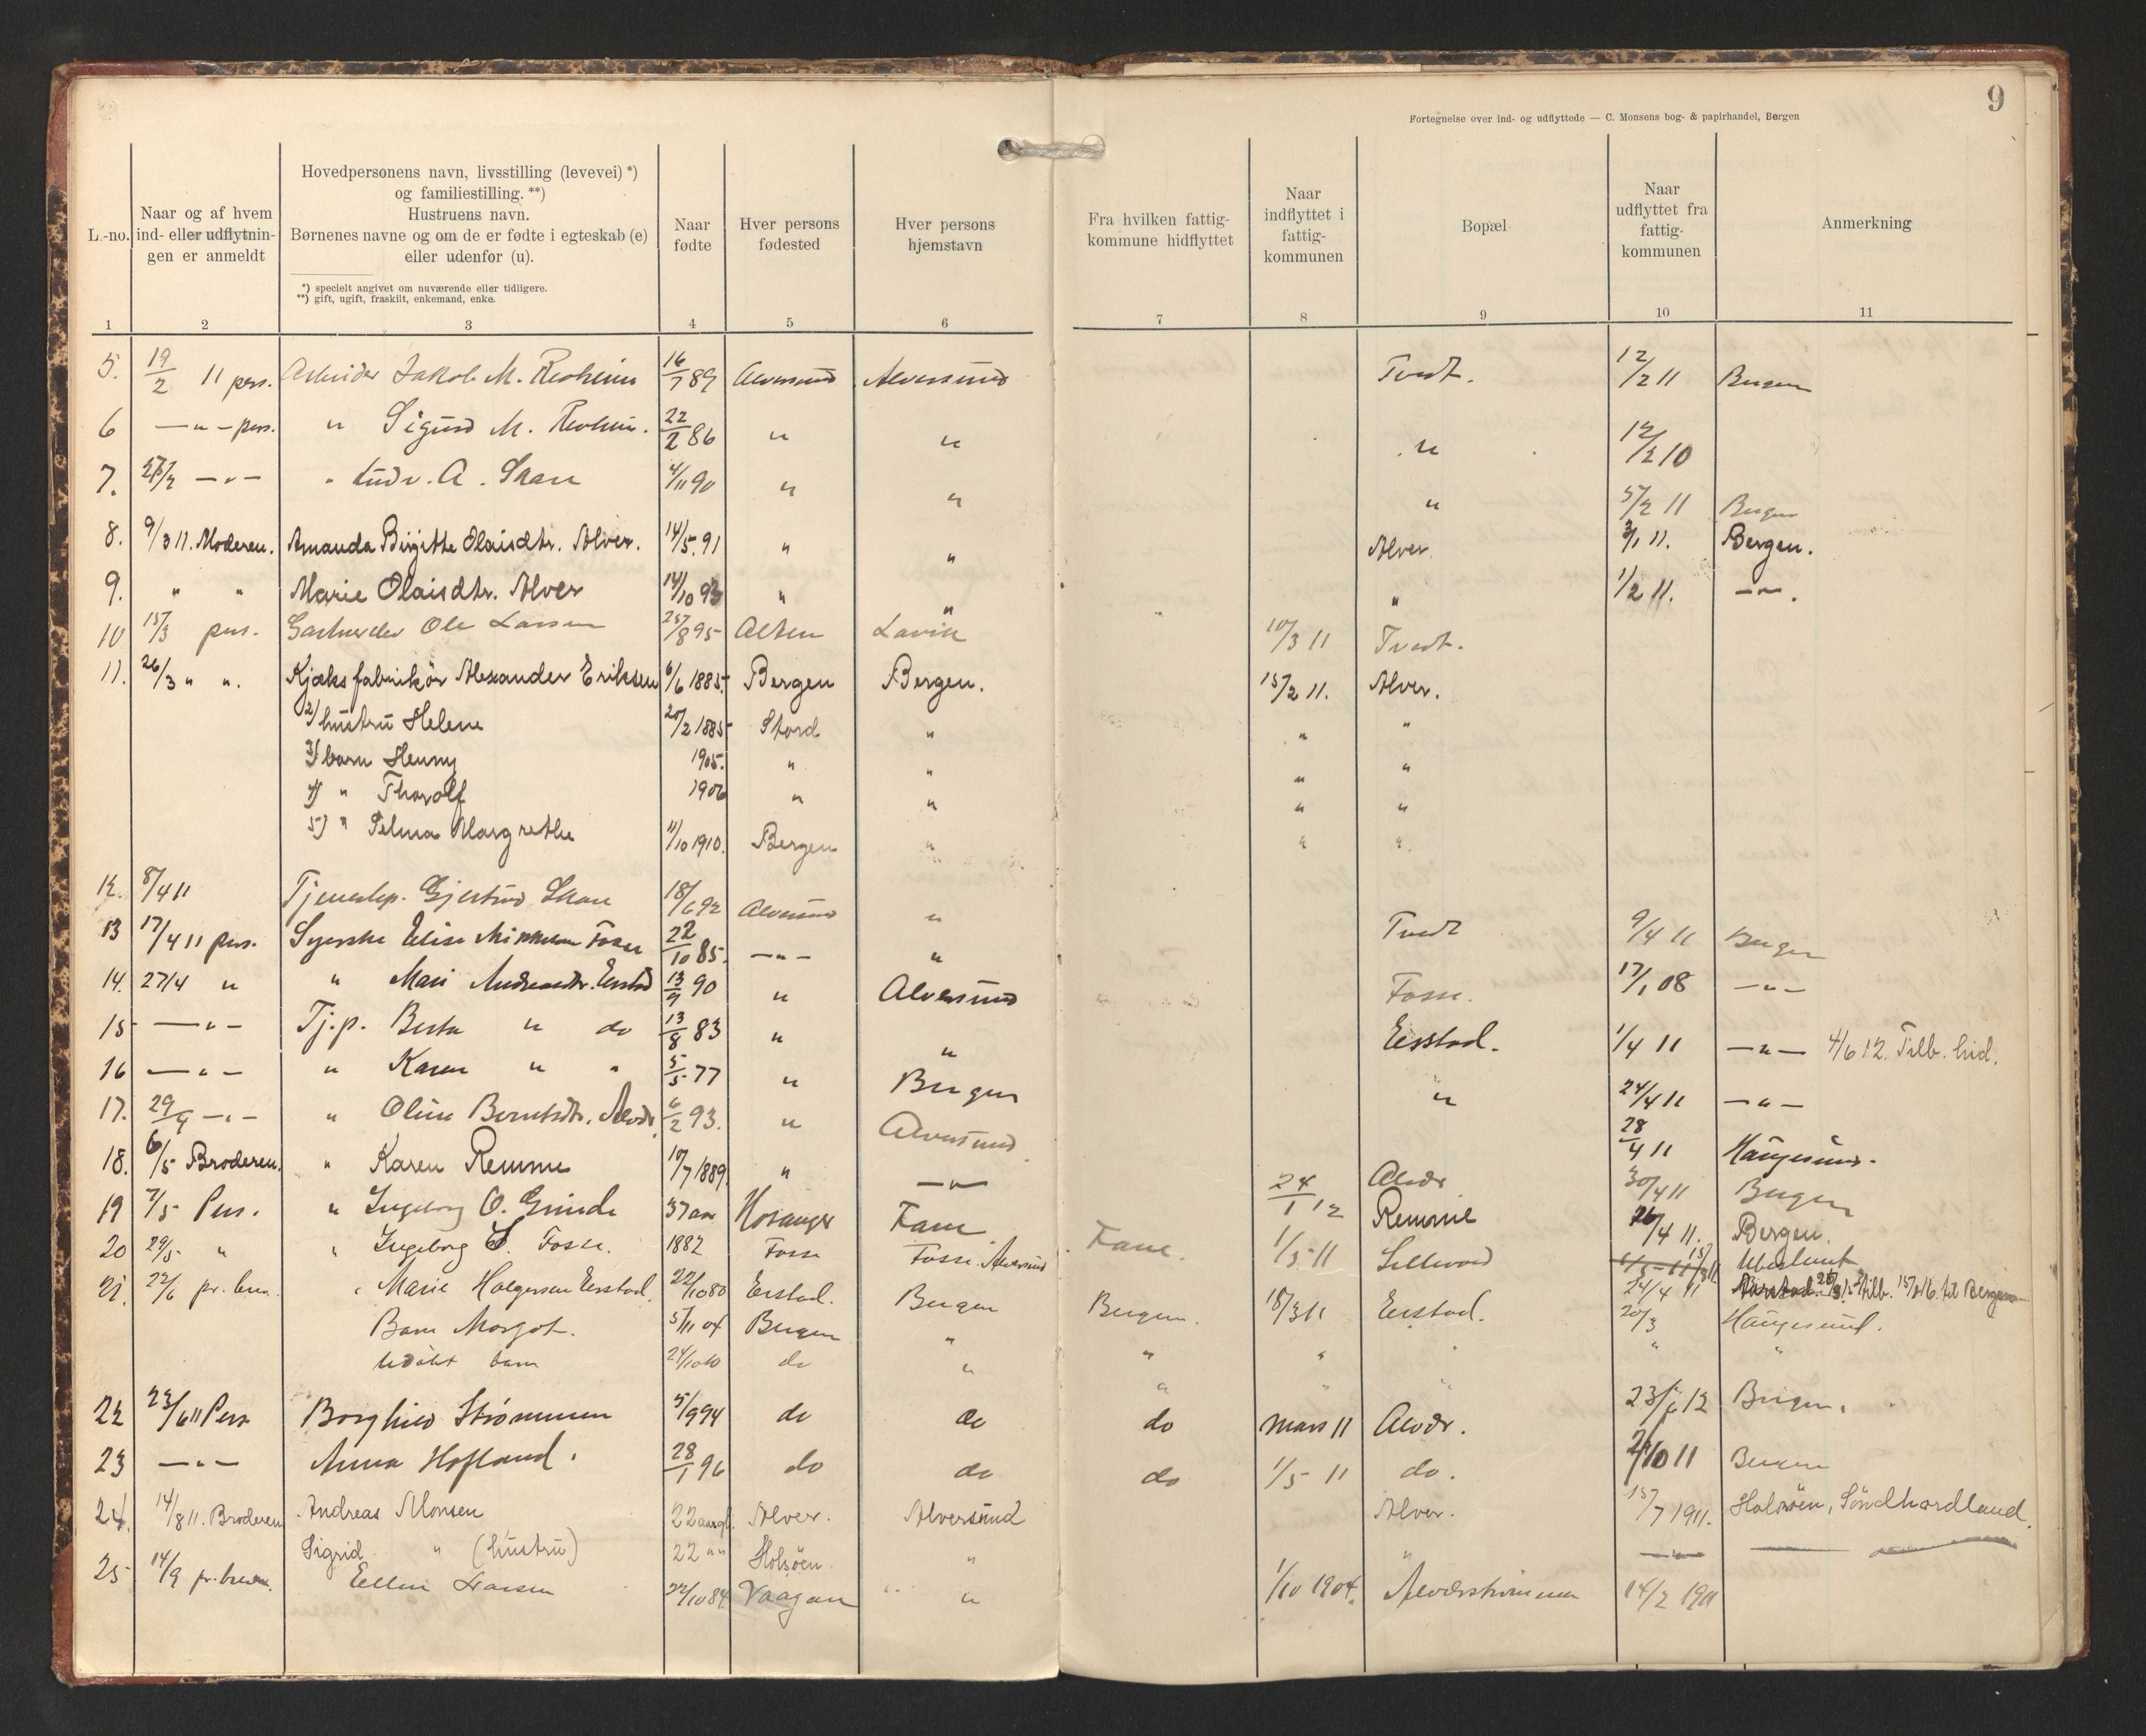 9
Fortegnelse over ind- og udflyttede — C. Monsens bog- & papirhandel, Bergen
L.-no.
Naar og af hvem
ind- eller udflytnin-
gen er anmeldt
Hovedpersonens navn, livsstilling (levevei) *)
og familiestilling. **)
Hustruens navn.
Børnenes navne og om de er fødte i egteskab (e)
eller udenfor (u).
*) specielt angivet om nuværende eller tidligere.
**) gift, ugift, fraskilt, enkemand, enke.
Naar
fødte
Hver persons
fødested
Hver persons
hjemstavn
Fra hvilken fattig-
kommune hidflyttet
Naar
indflyttet i
fattig-
kommunen
Bopæl
Naar
udflyttet fra
fattig-
kommunen
Anmerkning
1 2 3 4 5 6 7 8 9 10 11
5. 19/2 11 pers. Arbeider Jakob M. 16/7 89 Alversund Alversund Tvedt. 12/2 11 Bergen
6 — " – pers. " Sigurd M. 22/2 86 " " " 12/2 10
7. — " — " Ludv. A. Skare 4/11 90 " " " 5/2 11 Bergen
8. 9/3 11. Moderen. Amanda Birgitte Olaisdtr. Alver. 14/5. 91 " " Alver 3/1 11. Bergen.
9. " " Marie Olaisdtr. Alver 14/10 93 " " " 1/2 11. — " — .
10 15/3 pers. Ole Larsen 25/8 95 Lavik 10/3 11 Tvedt.
11. 26/3 " ". Kjæksfabrikør Alexander Eriksen 6/6 1885. Bergen Bergen. 15/2 11. Alver.
2) hustru Helene 20/2 1885 Stord " " "
3) barn Henny 1905. " " " "
4) " Thorolf 1906 " " " "
5) " Selma Margrethe 11/10 1910. Bergen " " "
12. 8/4 11 Tjenestep. Gjertrud Skare 18/6 92 Alversund " Tvedt 9/4 11 Bergen
13 17/4 11 pers. Syerske Elise Mikkelsen Fosse 22/10 85. — " — " Fosse. 17/1 08 — " —
14. 27/4 " " Mari Andreasdtr. Eirstad 13/9 90 " Alversund Eirstad. 1/4 11 — " — 4/6 12. Tilb. hid.
15 — " – Tj.p. Berta " do 13/8 83 " " " 24/4 11 — " —
16 — " – " Karen " " 5/5 77 " Bergen 28/4 11 Haugesund.
17. 29/4 — " – " Oline Berntsdtr. Alvær 6/2 93. " Alversund 24/1 12 Alvær 30/4 11 Bergen
18. 6/5 Broderen. " Karen Remme 10/7 1889. " — " — Remme 26/4 11. Bergen.
19 7/5 Pers. " Ingeborg O. Grinde 37 aar Hosanger Fane Fane. 1/5 11 Ubestemt
20 29/5 " " Ingeborg Fosse. 1882 Fosse Fosse. Alversund 24/4 11 tilb. til Bergen
21. 22/6 pr. brev. " Marie Holgersen Eirstad. 22/10 80 Eirstad. Bergen Bergen. 18/3 11 Eirstad. 20/3 Haugesund.
Barn Margot. 5/11 04 Bergen " " " " " "
Udøbt barn 24/10 10 do " " " "
22 23/6 11 Pers Borghild Strømmen 5/9 94 do do do mars 11 Alvær. 23/6 12 Bergen.
23 — " — Anna Hofland. 28/1 96 do do do 1/5 11 do. 2/10 11 Bergen
24. 14/8 11. Broderen Andreas Monsen 22 aargl. Alver. Alversund Alver. 15/7 1911. Holsöen, Söndhordland.
Sigrid " (hustru) 22 " " Holsöen " " — " —
25 14/9 pr. brev. Ellen Larsen 22/10 84 Vaagan " 1/10 1904. Alværstrømmen 14/2 1911